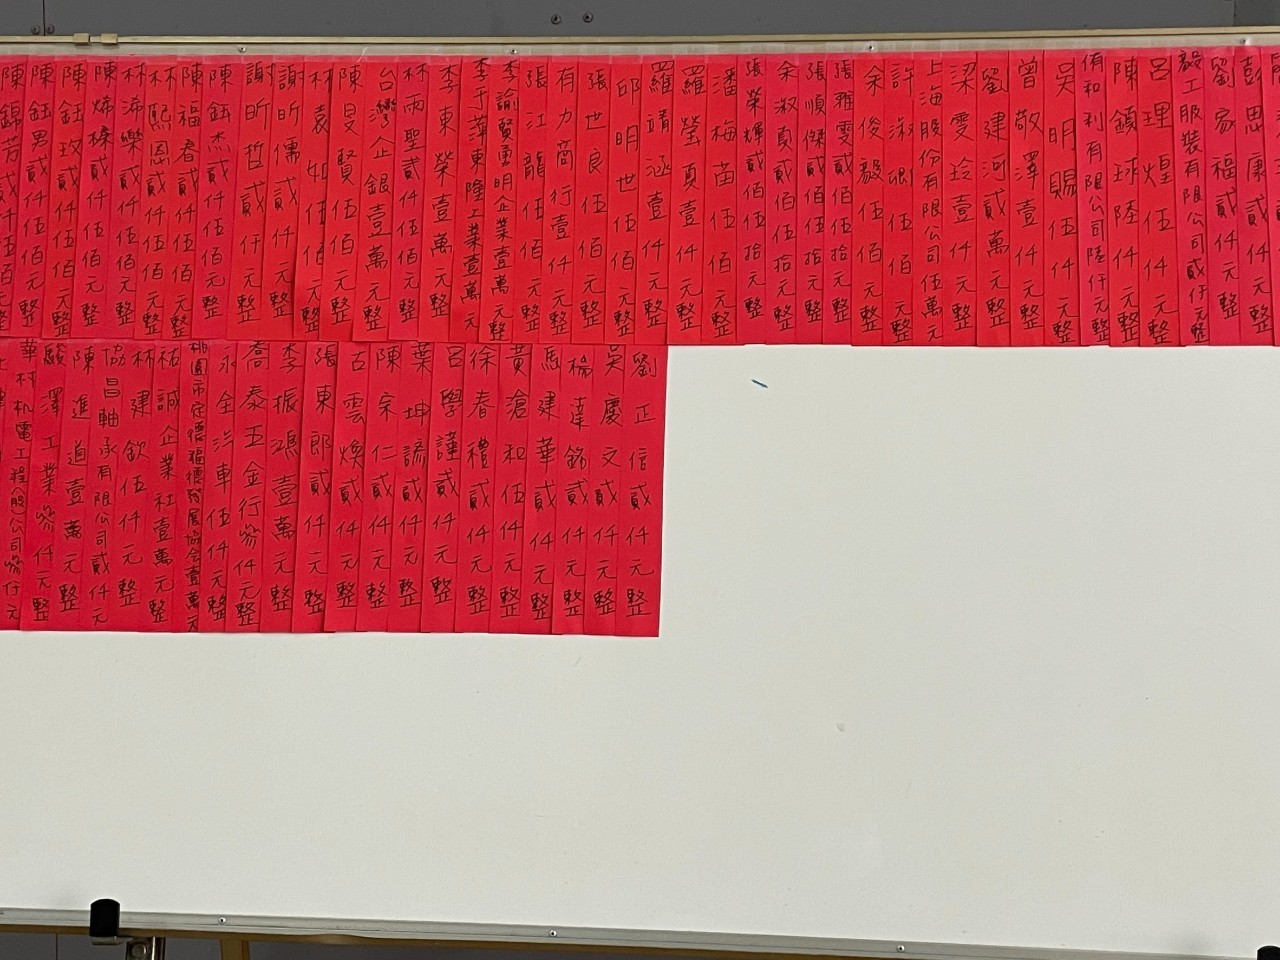 彭思康貳仟元整
劉家福貳仟元整
毅工服裝有限公司貳仟元整
呂理煌伍仟元整
陳鏡球陸仟元整
侑和利有限公司陸仟元整
吳明賜伍仟元整
曾敬澤壹仟元整
劉建河貳萬元整
梁雯玲壹仟元整
上海股份有限公司伍萬元
許淑卿伍佰元整
余俊毅伍佰元整
張雅雯貳佰伍拾元整
張順傑貳佰伍拾元整
余淑貞貳佰伍拾元整
張榮輝貳佰伍拾元整
潘梅苗伍佰元整
羅瑩真壹仟元整
羅靖涵壹仟元整
邱明世伍佰元整
張世良伍佰元整
有力商行壹仟元整
張江龍伍佰元整
李諭賢勇明企業壹萬元整
李于萍東陸工業壹萬元
李東榮壹萬元整
林雨聖貳仟伍佰元整
台灣企銀壹萬元整
陳旻賢伍佰元整
林袁如伍佰元整
謝昕儒貳仟元整
謝昕哲貳仟元整
陳鈺杰貳仟伍佰元整
陳福春貳仟伍佰元整
林熙恩貳仟伍佰元整
林浠樂貳仟伍佰元整
陳烯榛貳仟伍佰元整
陳鈺玫貳仟伍佰元整
陳鈺男貳仟伍佰元整
陳錦芳貳仟伍佰元整
劉正信貳仟元整
吳慶文貳仟元整
楊達銘貳仟元整
馬建華貳仟元整
黃滄和伍仟元整
徐春禮貳仟元整
呂學謹貳仟元整
葉坤諺貳仟元整
陳宗仁貳仟元整
古雲煥貳仟元整
張東郎貳仟元整
李振鴻壹萬元整
喬泰五金行參仟元整
永全汽車伍仟元整
桃園市定德福德發展協会壹萬元
祐誠企業社壹萬元整
林建欽伍仟元整
協昌軸承有限公司貳仟元
陳進道壹萬元整
駿澤工業參仟元整
華林机電工程(股)公司參仟元